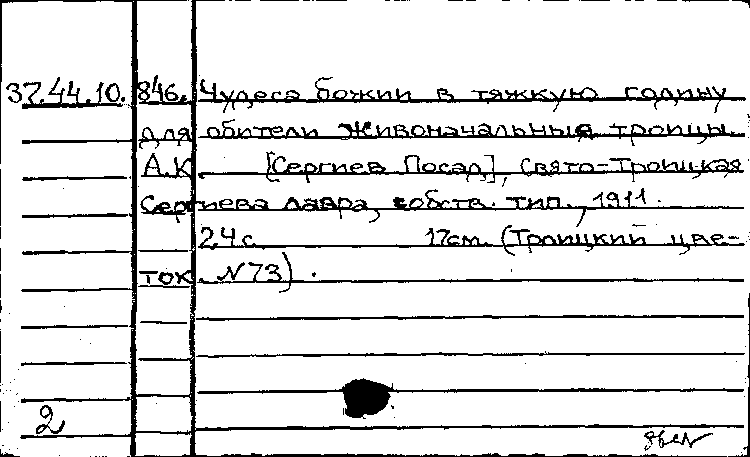 37.44.10. 846. Чудеса божии в тяжкую годину
для обители Живоначальныя троицы.
А.К. [Сергиев Посад], Свято-Троицкая
Сергиева лавра, собств. тип., 1911.
24 с. 17см. (Троицкий цве-
ток. №73).
2